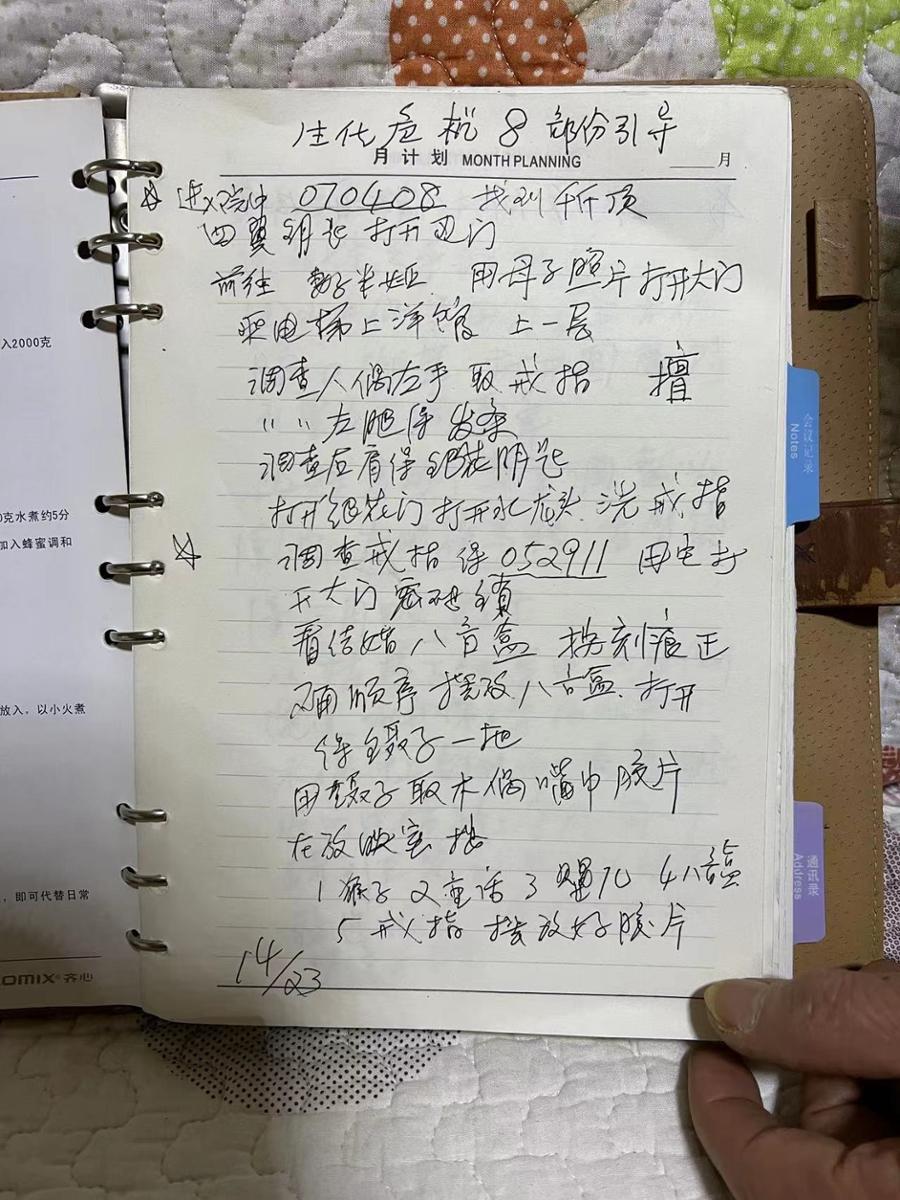 生化危机8部份引导
月计划 MONTH PLANNING 月
入2000克
0克水煮约5分
加入蜂蜜调和
放入，以小火煮
，即可代替日常
OMIX 齐心
☆ 进入院中 070408 找到千斤顶
四翼钥匙 打开边门
前往 用母子照片打开大门
乘电梯上洋馆 上一层
调查人偶左手取戒指 擅
〃 〃 左腿得发条
调查后背得 钥匙
打开 门打开水龙头 洗戒指
☆ 调查戒指得 052911 用它打
开大门密码锁
看结婚八音盒 按刻痕正
确顺序摆放八音盒 打开
得到镊子一把
用镊子取木偶嘴中胶片
在放映室按
1 猴子 2 童话 3 4 八音盒
5 戒指 摆放好胶片
14/23
会议记录
Notes
通讯录
Address